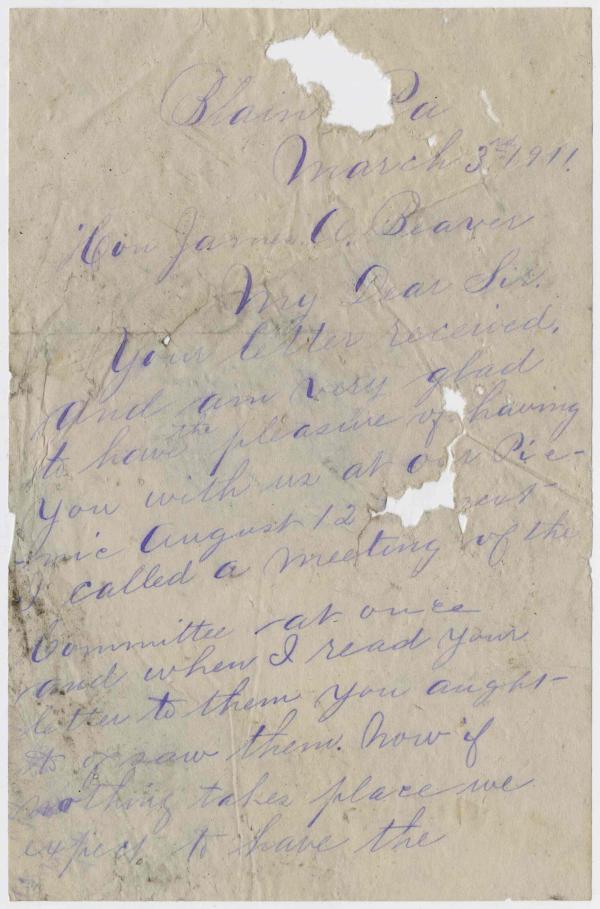 Blain Pa
March 3rd 1911.
Hon James A. Beaver
My Dear Sir.
Your letter received.
and am very glad
to have the pleasure of having
you with us at our Pic-
nic August 12 next
I called a meeting of the
Committee at once
and when I read your
letter to them you aught
to of saw them. Now if
nothing takes place we
expect to have the